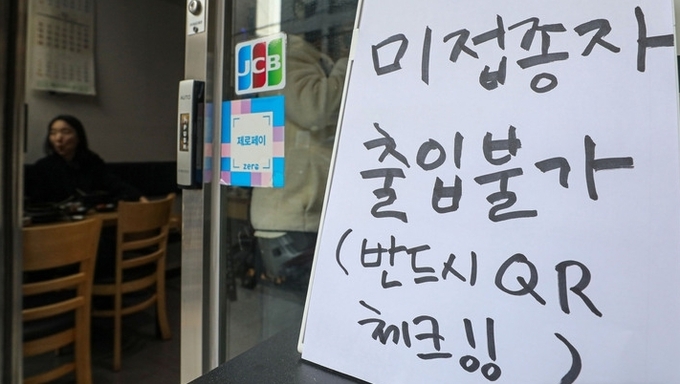 JCB
AUTO
PUSH
제로페이
zero
미접종자
출입불가
(반드시 QR
체크!!)